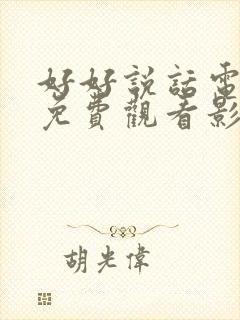 好好説話電
免費觀看影
胡光偉